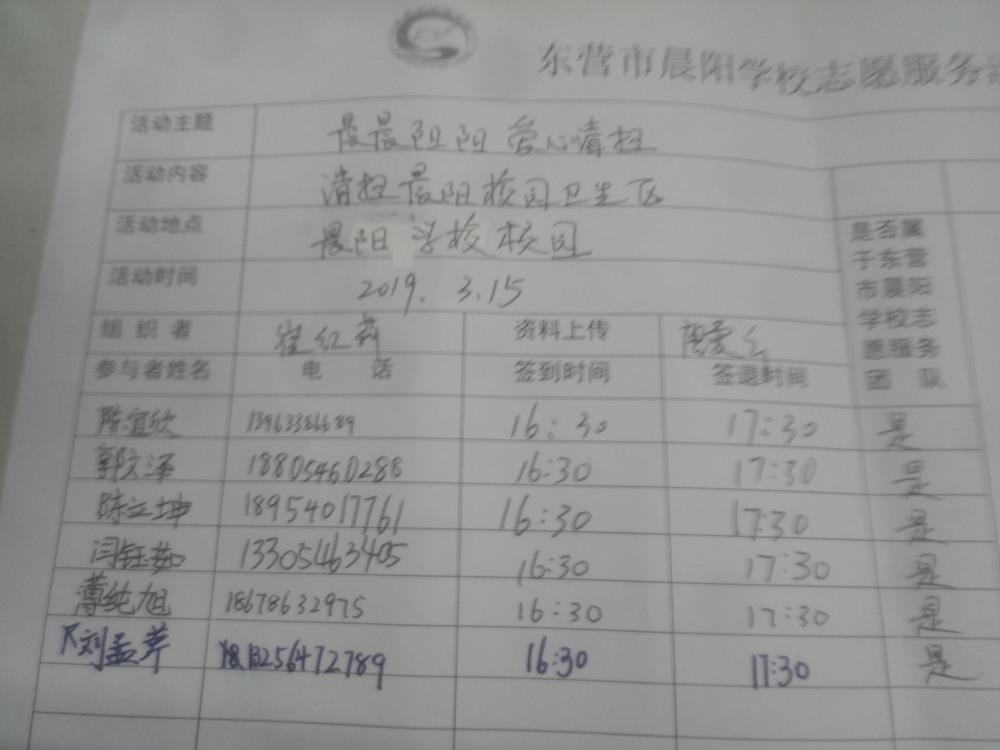 东营市晨阳学校志愿服务
活动主题 晨晨阳阳 爱心清扫
活动内容 清扫晨阳校园卫生区
活动地点 晨阳 学校校园
活动时间 2019. 3.15
组织者 崔红莉 资料上传
参与者姓名 电话 签到时间 签退时间 是否属于东营市晨阳学校志愿服务团队
陈宜欣 13963386689 16:30 17:30 是
郭文泽 18805460288 16:30 17:30 是
陈立坤 18954017761 16:30 17:30 是
闫钰茹 13305463405 16:30 17:30 是
薄纯旭 18678632975 16:30 17:30 是
刘孟芹 16:30 17:30 是